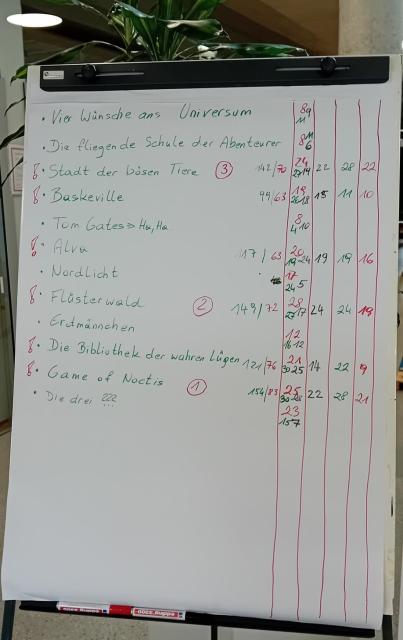 • Vier Wünsche ans Universum 8 9 11
• Die fliegende Schule der Abenteurer 8 11 6
• Stadt der bösen Tiere ③ 142/70 24 27 19 22 28 22
• Baskeville 99/63 19 26 18 18 11 10
• Tom Gates Ha, Ha 8 4 10
• Alva 117/63 20 19 24 19 19 16
• Nordlicht 17 24 5
• Flüsterwald ② 149/72 28 27 17 24 24 19
• Erdmännchen 12 16 12
• Die Bibliothek der wahren Lügen 121/76 21 30 25 14 22 9
• Game of Noctis ① 154/83 25 30 28 22 28 21
• Die drei ??? 23 15 7